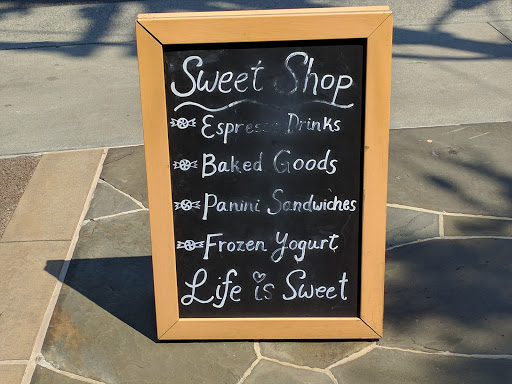 Sweet Shop
Espresso Drinks
Baked Goods
Panini Sandwiches
Frozen Yogurt
Life is Sweet